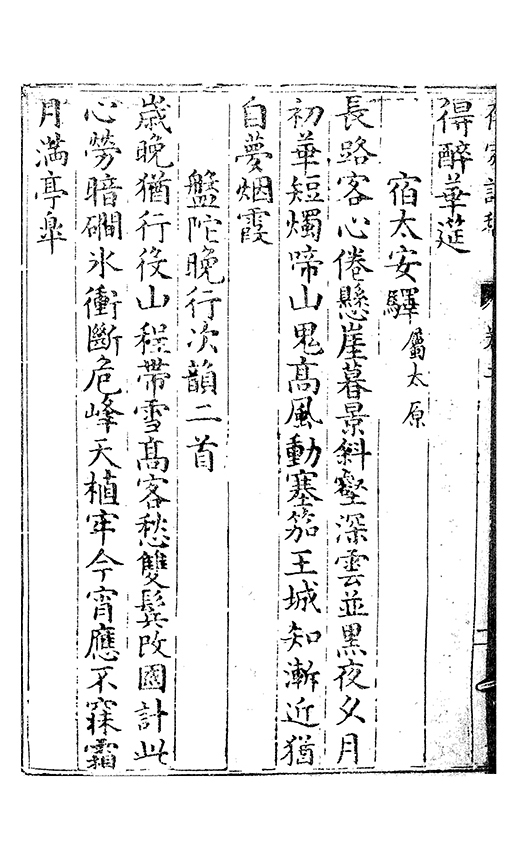 得醉華莚
宿太安驛屬太原
長路客心倦懸崖暮景斜壑深雲並黒夜久月
初華短燭啼山鬼髙風動塞笳王城知漸近猶
自夢烟霞
盤陀晚行次韻二首
歲晚猶行役山程帶雪髙客愁雙鬂改國計此
心勞暗磵氷衝斷危峰天植牢今宵應不寐霜
月滿亭臯